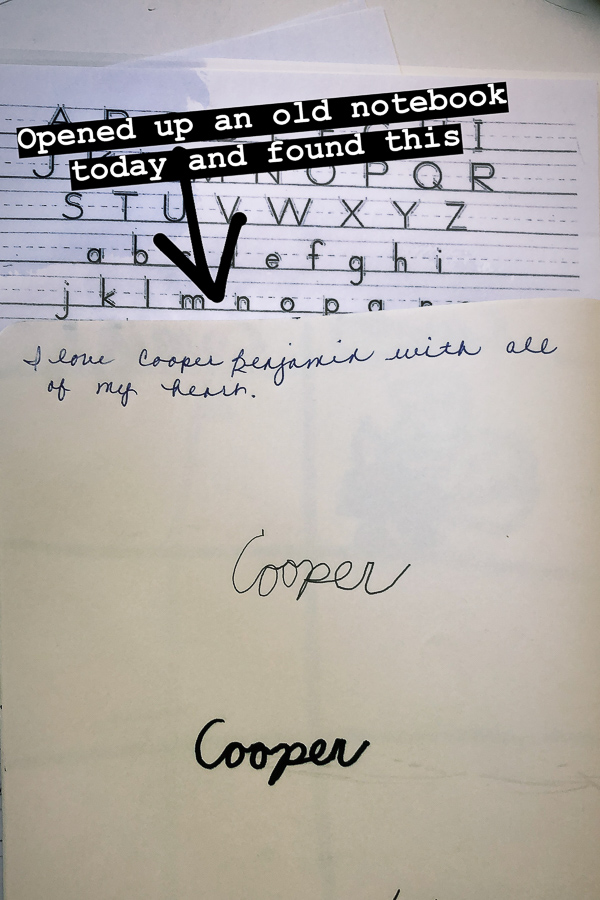 Opened up an old notebook
today and found this
A B I
J N O P Q R
S T U V W X Y Z
a b c e f g h i
j k l m n o p q
I love Cooper Benjamin with all
of my heart.
Cooper
Cooper